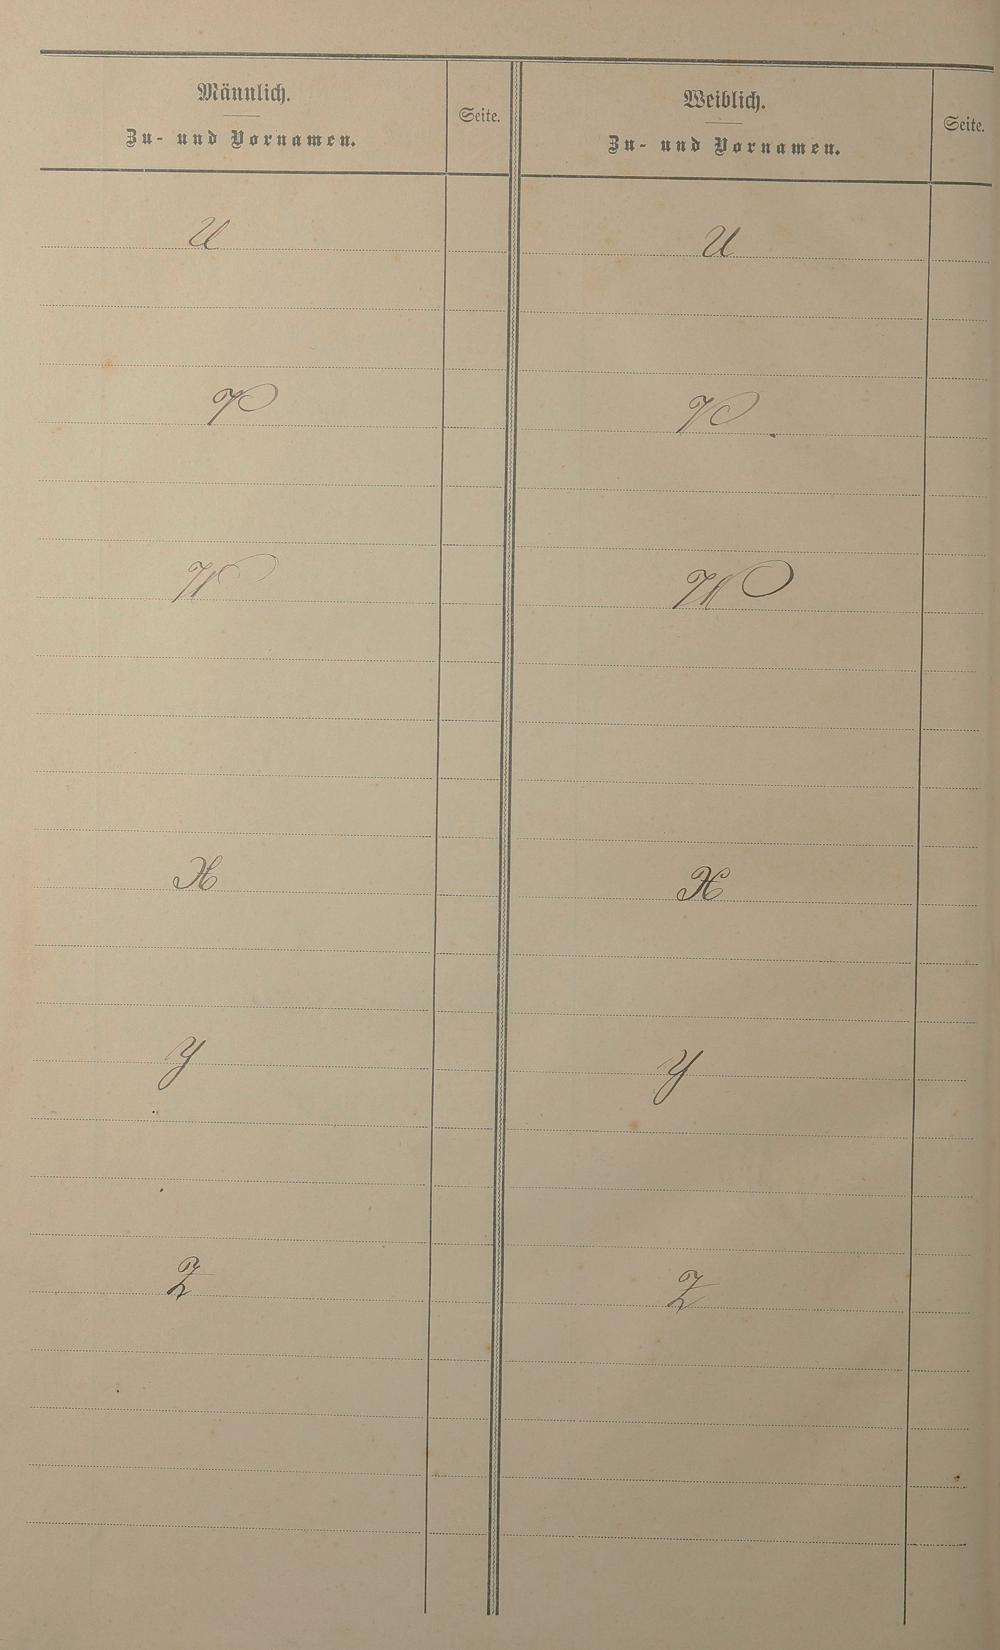 Männlich.
Zu- und Vornamen.
Seite.
Weiblich.
Zu- und Vornamen.
Seite.
U
U
V
V
W
W
X
X
Y
Y
Z
Z